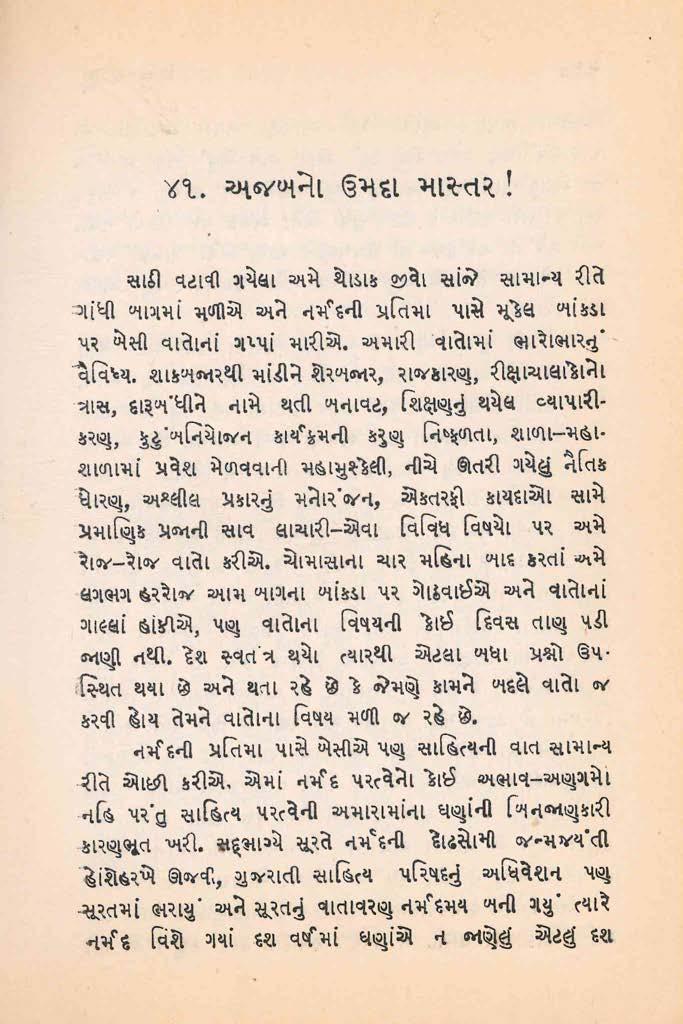 ૪૧. અજબનો ઉમદા માસ્તર !
સાઠી વટાવી ગયેલા અમે થોડાક જીવો સાંજે સામાન્ય રીતે
ગાંધી બાગમાં મળીએ અને નર્મદની પ્રતિમા પાસે મૂકેલ બાંકડા
પર બેસી વાતોનાં ગપ્પાં મારીએ. અમારી વાતોમાં ભારોભારનું
વૈવિધ્ય. શાકબજારથી માંડીને શેરબજાર, રાજકારણ, રીક્ષાચાલાકોનો
ત્રાસ, દારૂબંધીને નામે થતી બનાવટ, શિક્ષણનું થયેલ વ્યાપારી-
કરણ, કુટુંબનિયોજન કાર્યક્રમની કરુણ નિષ્ફળતા, શાળા–મહા-
શાળામાં પ્રવેશ મેળવવાની મહામુશ્કેલી, નીચે ઊતરી ગયેલું નૈતિક
ધોરણ, અશ્લીલ પ્રકારનું મનોરંજન, એકતરફી કાયદાઓ સામે
પ્રમાણિક પ્રજાની સાવ લાચારી–એવા વિવિધ વિષયો પર અમે
રોજ–રોજ વાતો કરીએ. ચોમાસાના ચાર મહિના બાદ કરતાં અમે
લગભગ હરરોજ આમ બાગના બાંકડા પર ગોઠવાઈએ અને વાતોનાં
ગાલ્લાં હાંકીએ, પણ વાતોના વિષયની કોઈ દિવસ તાણ પડી
જાણી નથી. દેશ સ્વતંત્ર થયો ત્યારથી એટલા બધા પ્રશ્નો ઉપ-
સ્થિત થયા છે અને થતા રહે છે કે જેમણે કામને બદલે વાતો જ
કરવી હોય તેમને વાતોના વિષય મળી જ રહે છે.
નર્મદની પ્રતિમા પાસે બેસીએ પણ સાહિત્યની વાત સામાન્ય
રીતે ઓછી કરીએ. એમાં નર્મદ પરત્વેનો કોઈ અભાવ–અણગમો
નહિ પરંતુ સાહિત્ય પરત્વેની અમારામાંના ઘણાંની બિનજાણકારી
કારણભૂત ખરી. સદ્‌ભાગ્યે સૂરતે નર્મદની દોઢસોમી જન્મજયંતી
હોંશેહરખે ઊજવી, ગુજરાતી સાહિત્ય પરિષદનું અધિવેશન પણ
સૂરતમાં ભરાયું અને સૂરતનું વાતાવરણ નર્મદમય બની ગયું ત્યારે
નર્મદ વિંશે ગયાં દશ વર્ષમાં ઘણાંએ ન જાણેલું એટલું દશ